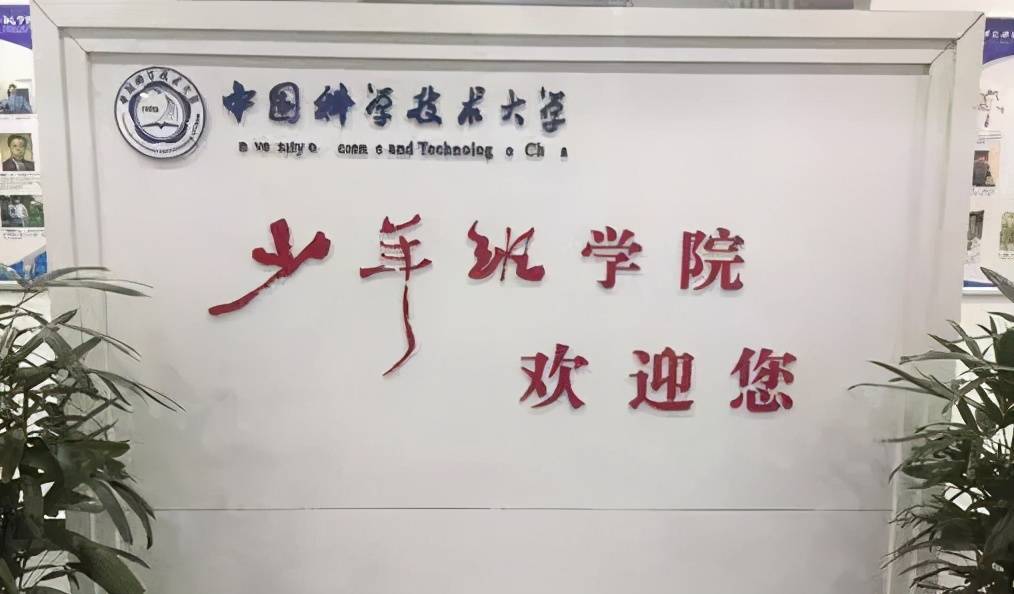 中国科学技术大学
and Technolog
少年班学院
欢迎您